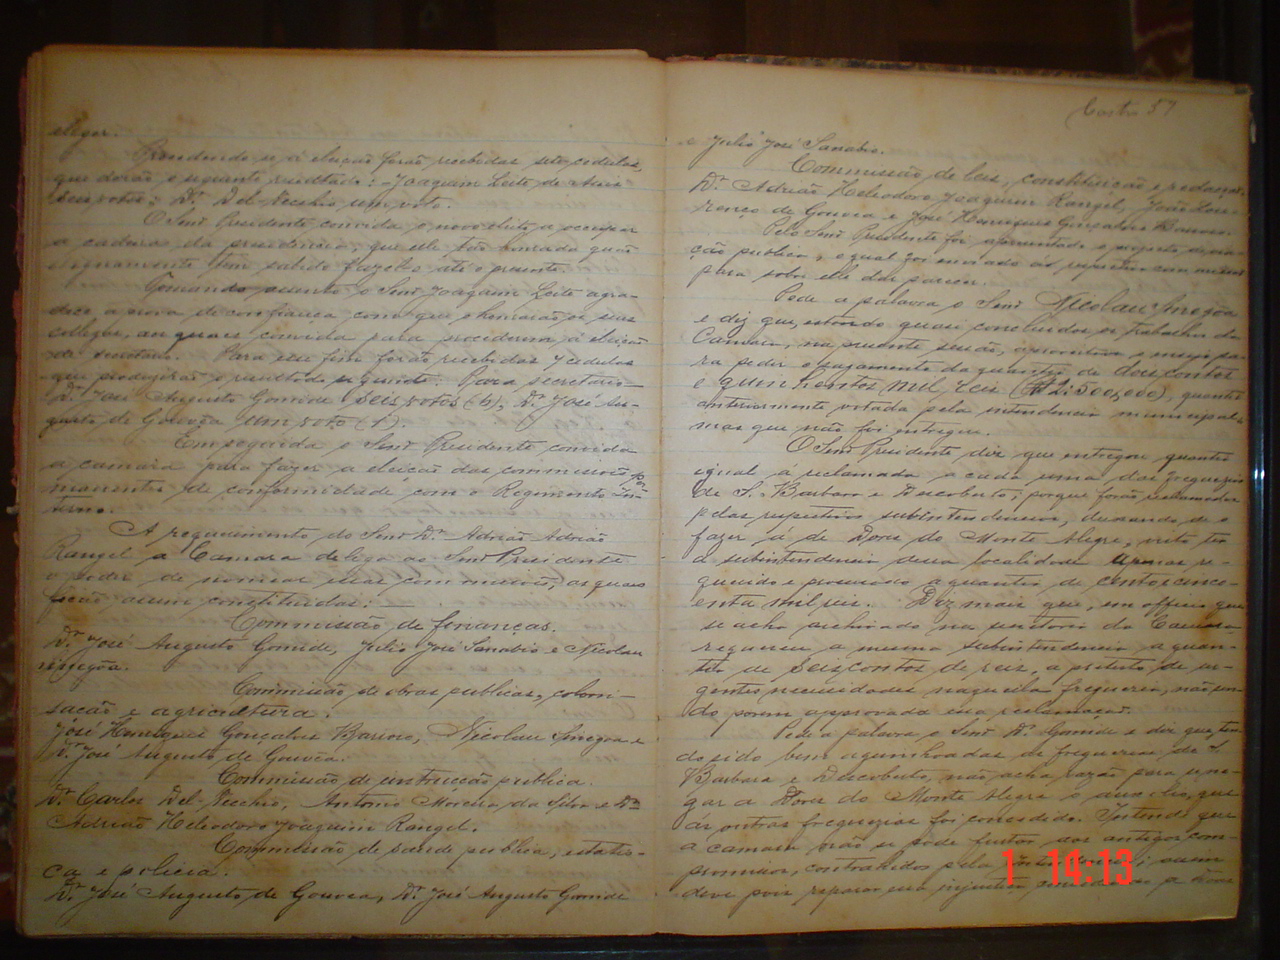 eleger.
Procedendo se á eleição forão recebidas sete cedulas,
que derão o seguinte resultado: Joaquim Leite de Assis
seis votos; Dr. Del-Vecchio um voto.
O Senr Presidente convida o novo eleito a occupar
a cadeira da presidencia, que elle tão honrada quão
dignamente tem sabido fazel-o até o presente.
Tomando assento o Senr Joaquim Leite agra-
dece a prova de confiança com que o honrarão os seus
collegas, aos quaes convida para procederem á eleição
de secretario. Para esse fim forão recebidas 7 cedulas
que produzirão o resultado seguinte: Para secretario—
Dr. José Augusto Gomide seis votos (6), Dr. José Au-
gusto de Gouvêa um voto (1).
Em seguida o Senr Presidente convida
a camara para fazer a eleição das commissões per-
manentes de conformidade com o Regimento In-
terno.
A requerimento do Senr Dr. Adrião Adrião
Rangel a Camara delega ao Senr Presidente
o poder de nomear essas commissões, as quaes
ficão assim constituidas:—
Commissão de finanças.
Dr. José Augusto Gomide, Julio José Sanabio e Nicolau
Smegôa.
Commissão de obras publicas, coloni-
sacão e agricultura.
José Henriques Gonçalves Barroso, Nicolau Smegoa e
Dr. José Augusto de Gouvêa.
Commissão de instrucção publica.
Dr. Carlos Del-Vecchio, Antonio Moreira da Silva e Dr.
Adrião Heliodoro Joaquim Rangel.
Commissão de saude publica, estatis-
ca e policia.
Dr. José Augusto de Gouvea, Dr. José Augusto Gomide
Costa 57
e Julio José Sanabio.
Commissão de leis, constituição e redacção.
Dr. Adrião Heliodoro Joaquim Rangel, João Lou-
renço de Gouvea e José Henriques Gonçalves Barroso.
Pelo Senr Presidente foi apresentado o projecto de
ção publica, o qual foi enviado á respectiva commissão
para sobre elle dar parecer.
Pede a palavra o Senr Nicolau Smegôa
e diz que, estando quasi concluidos os trabalhos da
Camara, na presente sessão, aproveitava o ensejo pa-
ra pedir o pagamento da quantia de dous contos
e quinhentos mil reis (R$ 2:500,000), quantia
anteriormente votada pela intendencia municipal,
mas que não foi entregue.
O Senr Presidente diz que entregou quantia
igual á reclamada a cada uma das freguezias
de S. Barbara e Descoberto, porque forão reclamadas
pelas respectivas subintendencias, deixando de o
fazer á de Dores do Monte Alegre, visto ter
a subintendencia dessa localidade apenas re-
querido e processado a quantia de cento e cinco-
enta mil reis. Diz mais que, em officio que
se acha archivado na secretaria da Camara—
requereu a mesma subintendencia a quan-
tia de seis contos de reis, a pretexto de ur-
gentes necessidades naquella freguezia, não sen-
do porem approvada essa reclamação.
Pede a palavra o Senr Dr. Gomide e diz que, ten-
do sido bem aquinhoadas as freguezias de S.
Barbara e Descoberto, não acha razão para se ne-
gar a Dores do Monte Alegre o auxilio, que
ás outras freguezias foi concedido. Entende que
a camara não se póde furtar aos antigos com-
promissos, contrahidos pela Intendencia; assim
deve pois reparar essa injustiça a
1 14:13